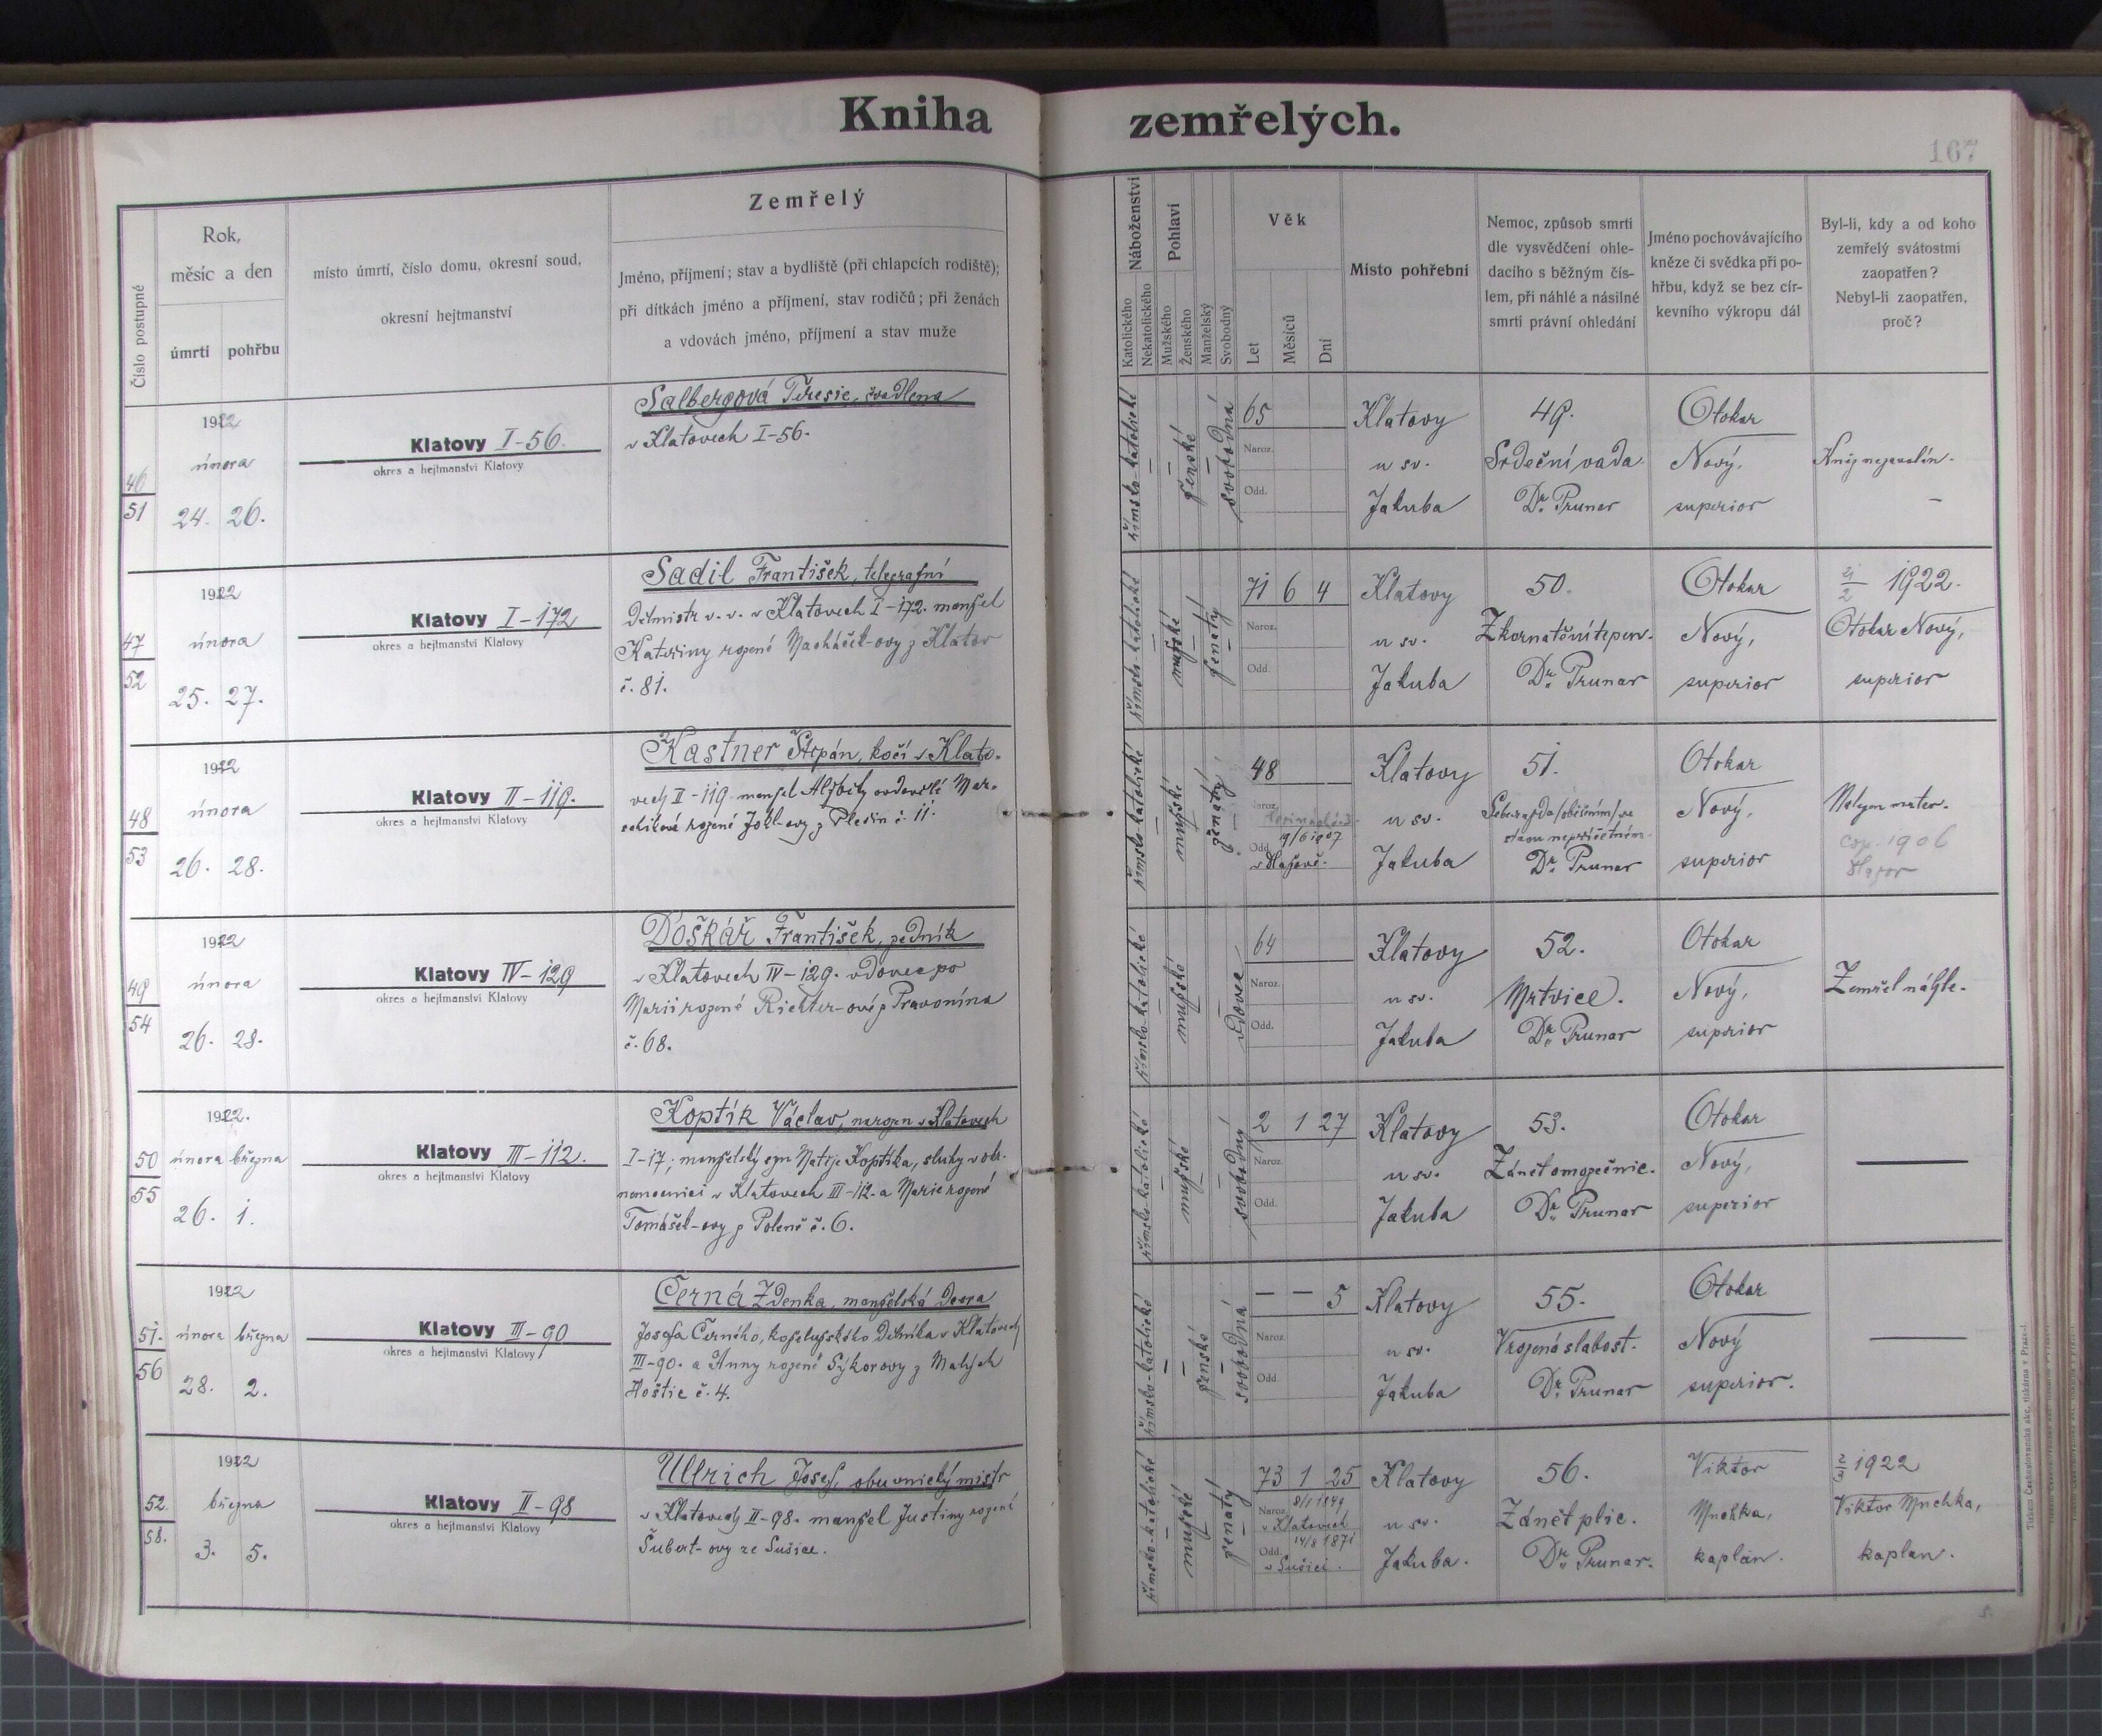 Kniha zemřelých.
167
Číslo postupné
Rok,
měsíc a den
úmrtí
pohřbu
místo úmrtí, číslo domu, okresní soud,
okresní hejtmanství
Zemřelý
Jméno, příjmení; stav a bydliště (při chlapcích rodiště);
při dítkách jméno a příjmení, stav rodičů; při ženách
a vdovách jméno, příjmení a stav muže
Náboženství
Katolického
Nekatolického
Pohlaví
Mužského
Ženského
Manželský
Svobodný
Věk
Let
Měsíců
Dní
Místo pohřební
Nemoc, způsob smrti
dle vysvědčení ohle-
dacího s běžným čís-
lem, při náhlé a násilné
smrti právní ohledání
Jméno pochovávajícího
kněze či svědka při po-
hřbu, když se bez cír-
kevního výkropu dál
Byl-li, kdy a od koho
zemřelý svátostmi
zaopatřen?
Nebyl-li zaopatřen,
proč?
46
51
1922
února
24. 26.
Klatovy I-56.
okres a hejtmanství Klatovy
Salbergová Terezie, švadlena
v Klatovech I-56.
římsko-katolické
ženské
svobodná
65
Naroz.
Odd.
Klatovy
u sv.
Jakuba
49.
Srdeční vada.
Dr. Prunar
Otokar
Nový,
superior
Kněz nezavolán.
47
52
1922
února
25. 27.
Klatovy I-172
okres a hejtmanství Klatovy
Sadil František, telegrafní
dílmistr v. v. v Klatovech I-172. manžel
Kateřiny rozené Macháček-ovy z Klatov
č. 81.
římsko-katolické
mužské
ženatý
71 6 4
Naroz.
Odd.
Klatovy
u sv.
Jakuba
50.
Zkornatění tepen.
Dr. Prunar
Otokar
Nový,
superior
21/2 1922.
Otokar Nový,
superior
48
53
1922
února
26. 28.
Klatovy II-119.
okres a hejtmanství Klatovy
Kastner Štěpán, kočí v Klato-
vech II-119. manžel Alžběty ovdovělé
rozené Jokl-ovy z č. 11.
římsko-katolické
mužské
ženatý
48
Naroz.
Odd. 9/6 1907
Klatovy
u sv.
Jakuba
51.
Sebevražda (oběšením) ve
stavu nepříčetném.
Dr. Prunar
Otokar
Nový,
superior
cop. 1906
49
54
1922
února
26. 28.
Klatovy IV-129
okres a hejtmanství Klatovy
Doškář František, podník
v Klatovech IV-129. vdovec po
Marii rozené Richter-ové z Pravonína
č. 68.
římsko-katolické
mužské
vdovec
64
Naroz.
Odd.
Klatovy
u sv.
Jakuba
52.
Mrtvice.
Dr. Prunar
Otokar
Nový,
superior
Zemřel náhle.
50
55
1922.
února března
26. 1.
Klatovy III-112.
okres a hejtmanství Klatovy
Koptík Václav, narozen v Klatovech
I-17; manželský syn Matěje Koptíka, sluhy v okr.
nemocnici v Klatovech III-112. a Marie rozené
Tomášek-ovy z Poleně č. 6.
římsko-katolické
mužské
svobodný
2 1 27
Naroz.
Odd.
Klatovy
u sv.
Jakuba
53.
Zánět omozečnic.
Dr. Prunar
Otokar
Nový,
superior
51.
56
1922
února března
28. 2.
Klatovy III-90
okres a hejtmanství Klatovy
Černá Zdenka, manželská dcera
Josefa Černého, koželužského dělníka v Klatovech
III-90. a Anny rozené Sýkorovy z Malých
Hoštic č. 4.
římsko-katolické
ženské
svobodná
— — 5
Naroz.
Odd.
Klatovy
u sv.
Jakuba
55.
Vrozená slabost.
Dr. Prunar
Otokar
Nový
superior.
52.
58.
1922
března
3. 5.
Klatovy II-98
okres a hejtmanství Klatovy
Ullrich Josef, obuvnický mistr
v Klatovech II-98. manžel Justiny rozené
Šubert-ovy ze Sušice.
římsko-katolické
mužské
ženatý
73 1 25
Naroz. 8/1 1849
v Klatovech
Odd. 14/8 1871
v Sušici.
Klatovy
u sv.
Jakuba.
56.
Zánět plic.
Dr. Prunar.
Viktor
Muchka,
kaplan.
2/3 1922
Viktor Muchka,
kaplan.